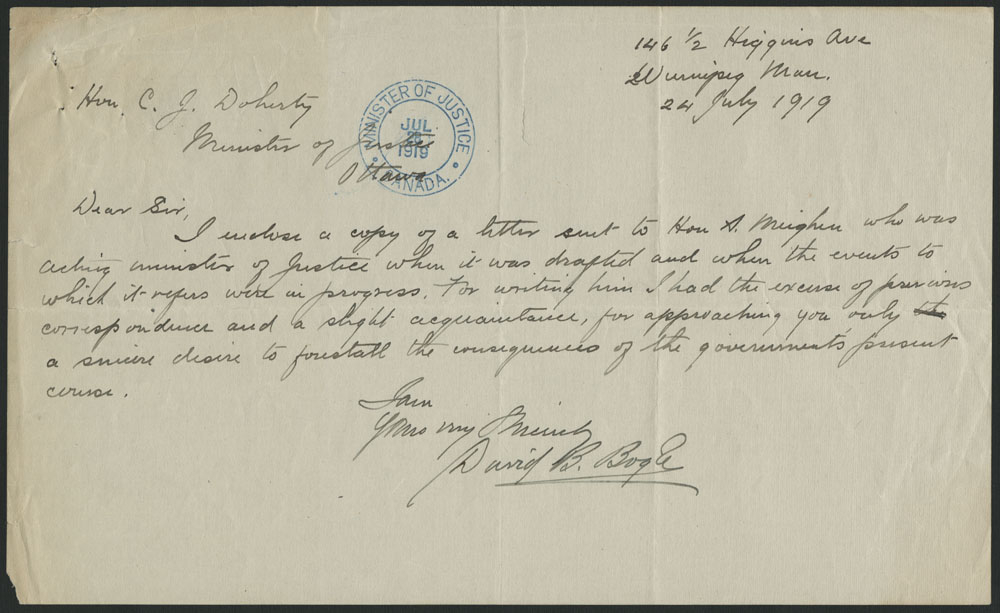 146 1/2 Higgins Ave
Winnipeg Man.
24 July 1919
Hon. C. J. Doherty
Minister of Justice
Ottawa
MINISTER OF JUSTICE
JUL
1919
CANADA.
Dear Sir,
I enclose a copy of a letter sent to Hon A. Meighen who was
acting minister of Justice when it was drafted and when the events to
which it refers were in progress. For writing him I had the excuse of previous
correspondence and a slight acquaintance, for approaching you only
a sincere desire to forestall the consequences of the government's present
course.
I am
Yours very sincerely
David B. Bogle